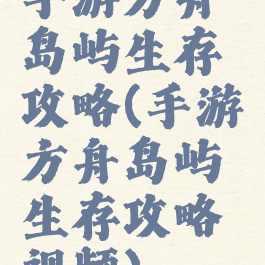 手游方舟
岛屿生存
攻略(手游
方舟岛屿
生存攻略
视频)